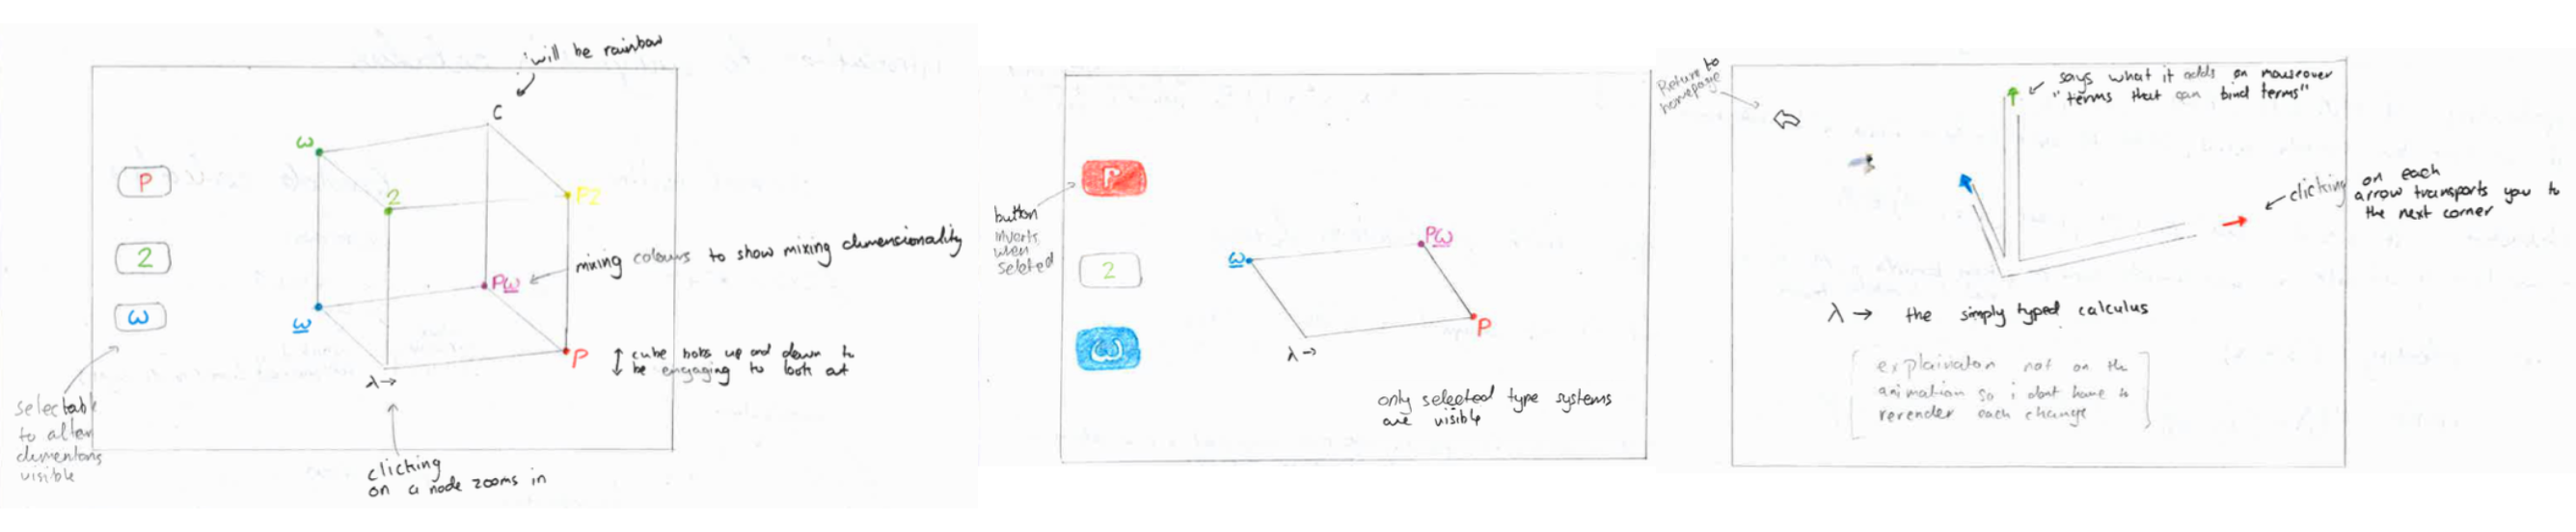 will be rainbow
C
ω
P
2
P2
mixing colours to show mixing dimensionality
2
Pω
ω
ω
P
cube bobs up and down to
be engaging to look at
λ→
selectable
to alter
dimentions
visible
clicking
on a node zooms in
P
button
inverts
when
selected
2
ω
Pω
ω
P
λ→
only selected type systems
are visible
Return to
homepage
says what it adds on mouseover
"terms that can bind terms"
clicking on each
arrow transports you to
the next corner
λ→ the simply typed calculus
explaination not on the
animation so i dont have to
rerender each change